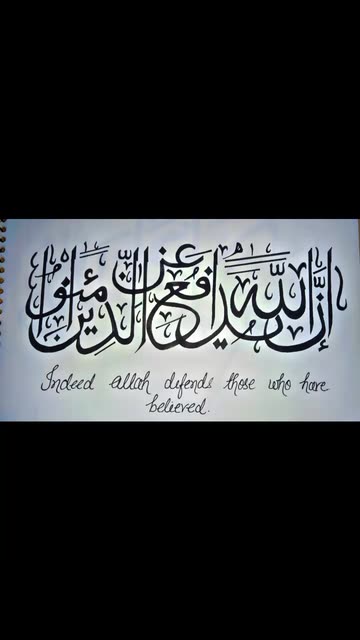 إن الله يدافع عن الذين آمنوا
Indeed Allah defends those who have
believed.